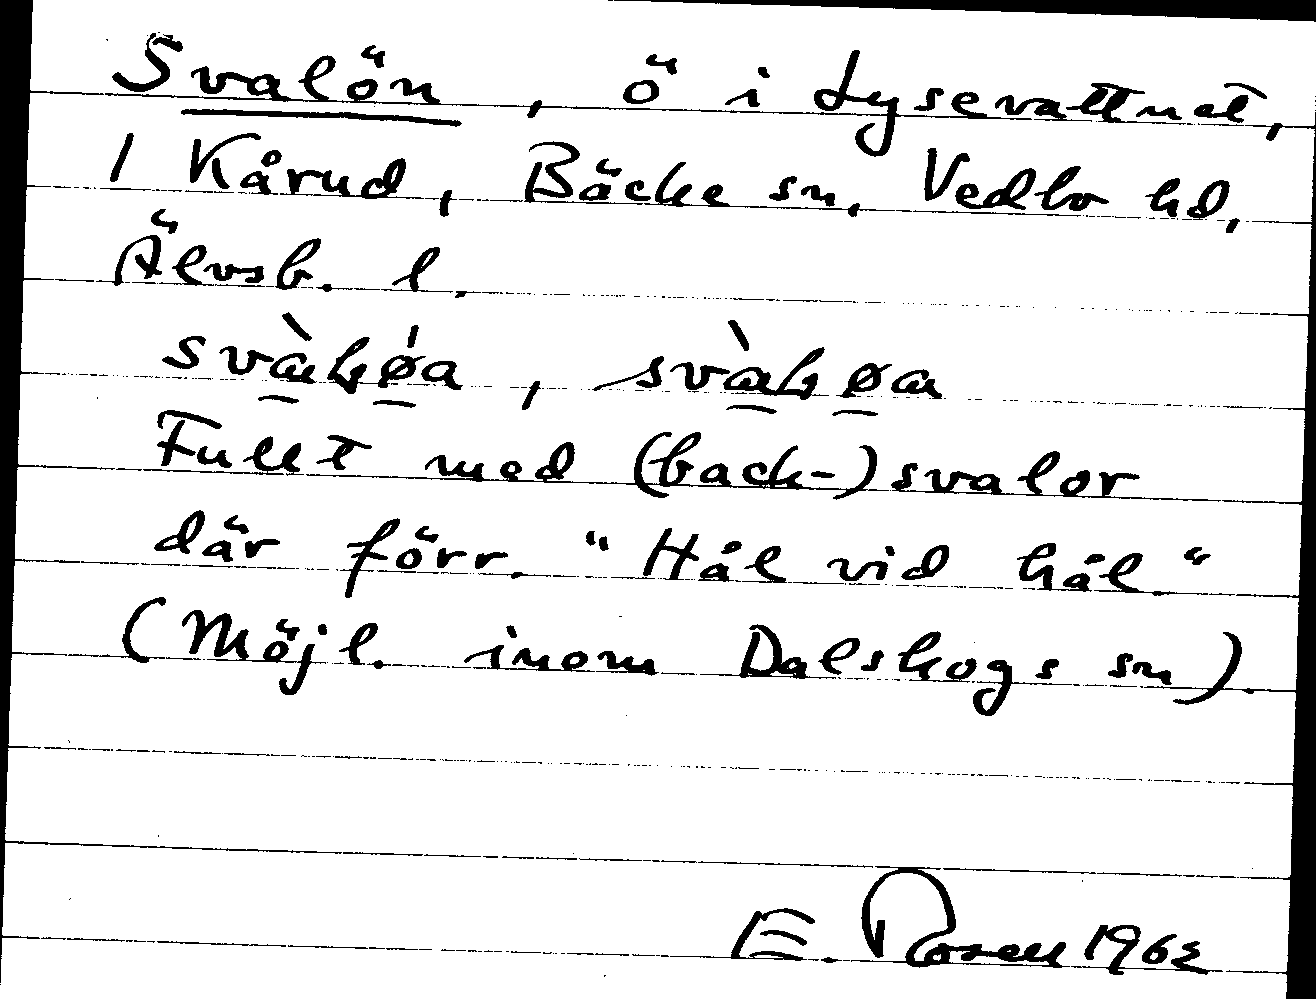 Svalön, ö i Lysevattnet,
1 Kårud, Bäcke sn, Vedbo hd,
Älvsb. l.
Fullt med (back-)svalor
där förr. "Hål vid hål."
(Möjl. inom Dalskogs sn).
E. Rosell 1962